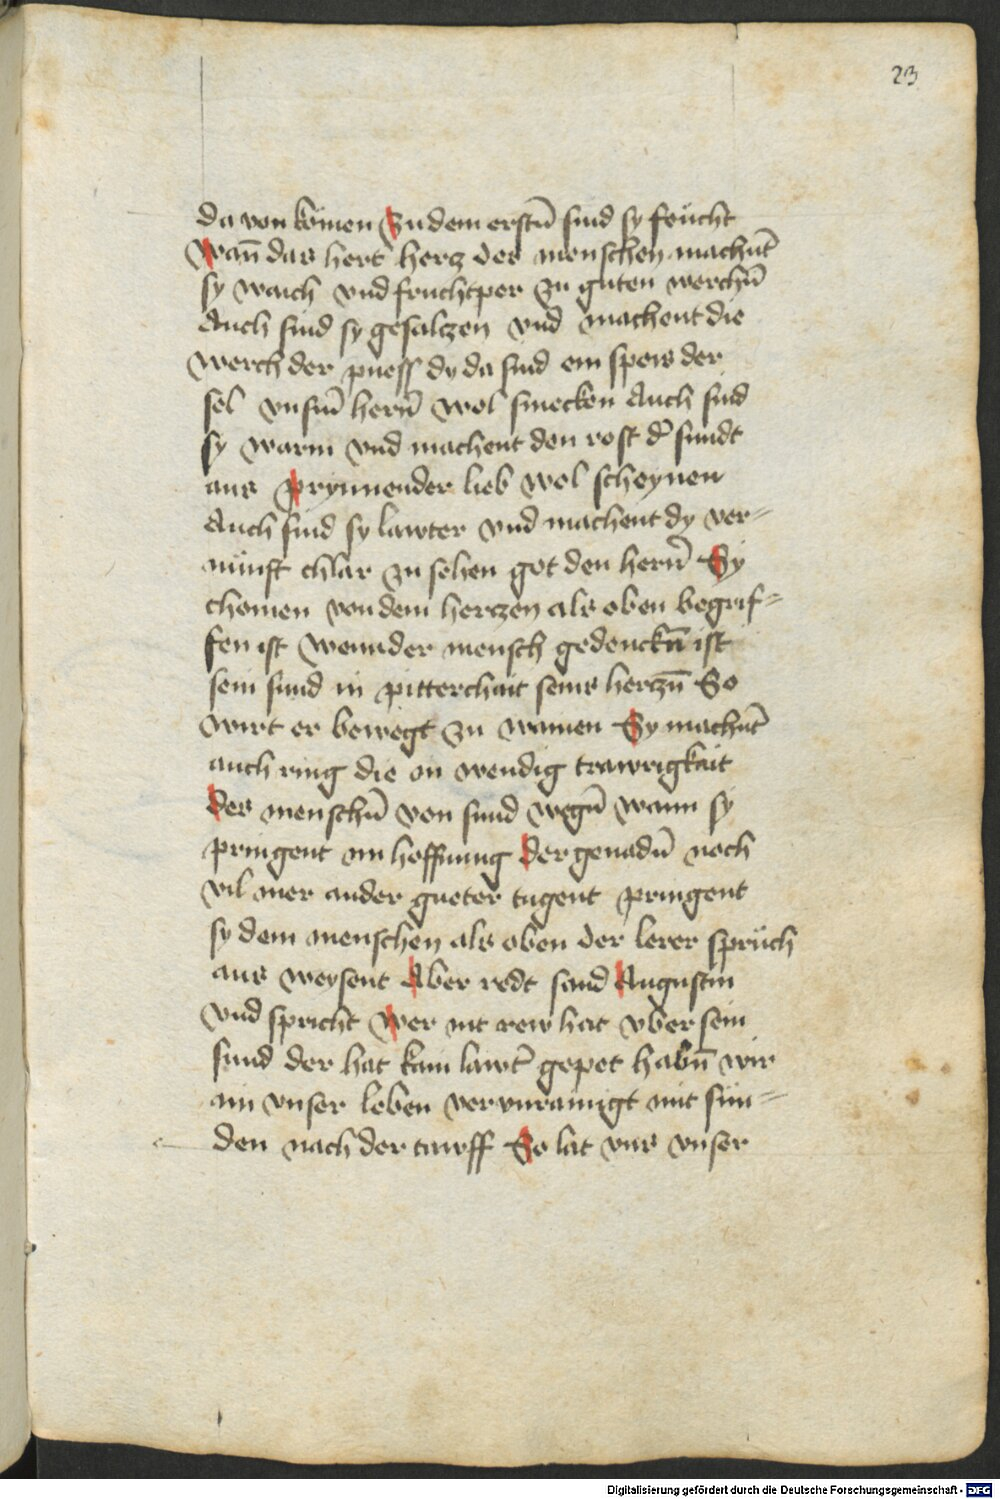 23
da von kömen Zu dem erstn̄ sind sy feücht
Wan̄ das hert hercz des menschen machnt̄
sy waich vnd fruchtper zu guten werchn̄
Auch sind sy gesalczen vnd machent die
werch der puess dy da sind ein speis der
sel vnsm̄ hern̄ wol smecken Auch sind
sy warm vnd machent den rost d̄ sundt
aus prynnender lieb wol scheynen
Auch sind sy lawter vnd machent dy ver=
nünft chlar zu sehen got den hern̄ Sy
chomen von dem herczen als oben begrif=
fen ist wenn der mensch gedenckn̄ ist
sein sund in pitterchait seins herczn̄ So
wirt er bewegt zu wainen Sy machnt̄
auch ring die in wendig trawrigkait
des menschn̄ von sund wegn̄ wann sy
pringent im hoffnung der genadn̄ noch
vil mer ander gueter tugent pringent
sy dem menschen als oben der lerer sprüch
aus weysent Aber redt sand Augustin
vnd spricht Wer nit rew hat vber sein
sund der hat kain lawt̄ gepet habn̄ wir
ain vnser leben vervnrainigt mit sün=
den nach der tawff So lat vns vnser
Digitalisierung gefördert durch die Deutsche Forschungsgemeinschaft - DFG